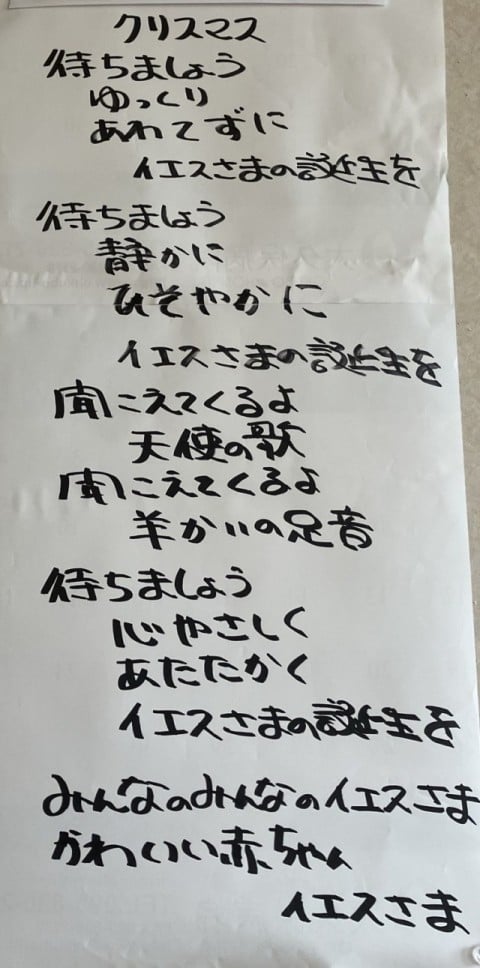 クリスマス
待ちましょう
ゆっくり
あわてずに
イエスさまの誕生を
待ちましょう
静かに
ひそやかに
イエスさまの誕生を
聞こえてくるよ
天使の歌
聞こえてくるよ
羊かいの足音
待ちましょう
心やさしく
あたたかく
イエスさまの誕生を
みんなのみんなのイエスさま
かわいい赤ちゃん
イエスさま